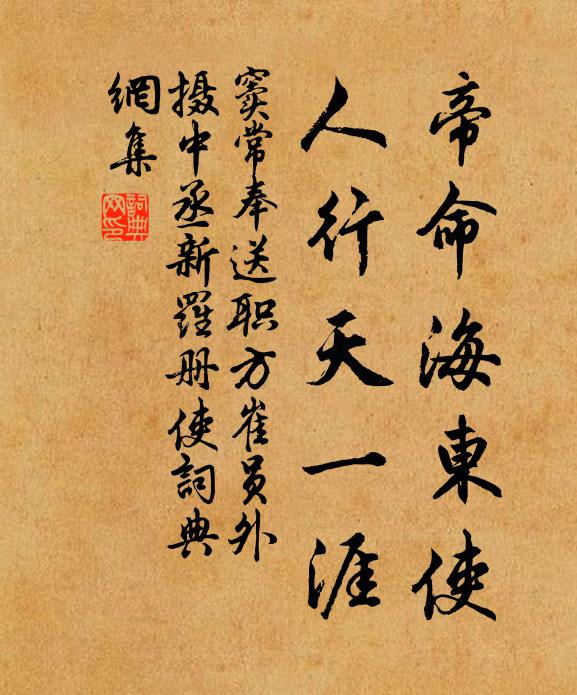 帝命海東使
人行天一涯
窦常奉送职方崔员外
摄中丞新羅册使詞典
網集
詞典网印